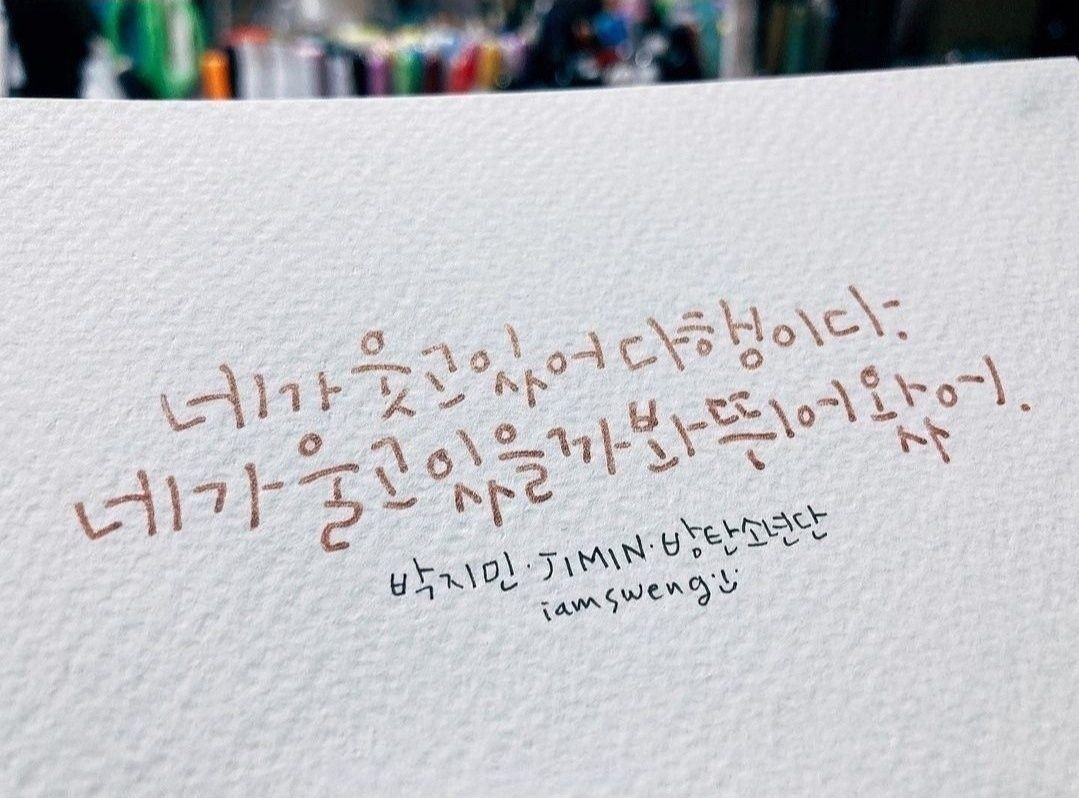 네가 웃고 있어 다행이다.
네가 울고 있을까 봐 뛰어 왔어.
박지민·JIMIN·방탄소년단
iamsweng:)